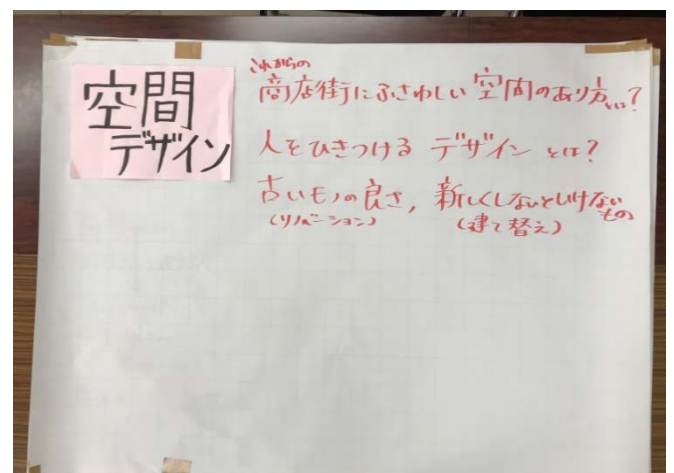 空間
デザイン
これからの
商店街にふさわしい空間のあり方とは?
人をひきつけるデザインとは?
古いモノの良さ, 新しくしないといけないもの
(リノベーション) (建て替え)